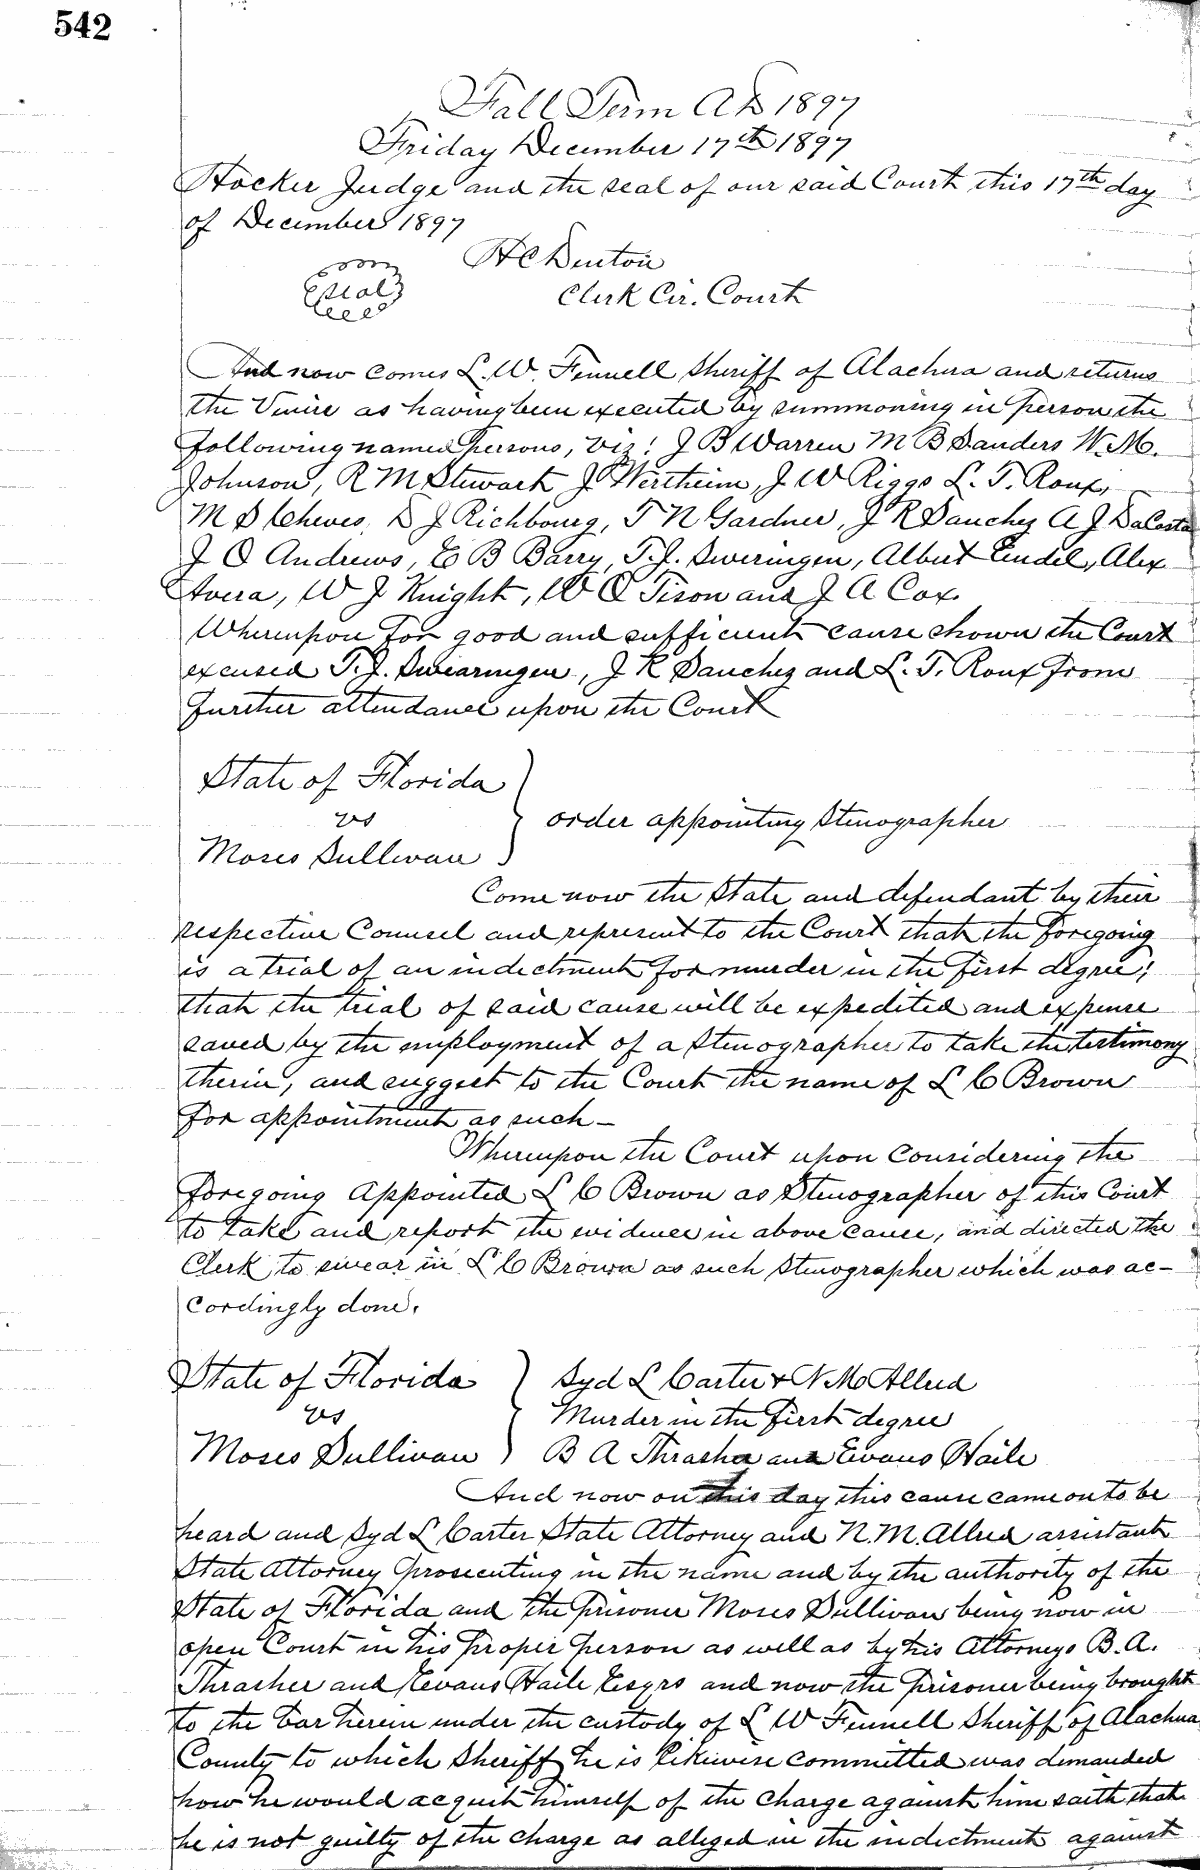 542
Fall Term A D 1897
Friday December 17th 1897
Hocker Judge and the seal of our said Court this 17th day
of December 1897
H C Denton
Seal
Clerk Cir. Court
And now comes L. W. Fennell Sheriff of Alachua and returns
the Venire as having been executed by summoning in person the
following named persons, viz: J B Warren M B Sanders W. M.
Johnson, R M Stewart J Wertheim, J W Riggs L. T. Roux,
M S Cheves, D J Richbourg, T N Gardner, J R Sanchez A J DaCosta
J O Andrews, E B Barry, T. J. Sweringen, Albert Endel, Alex
Avera, W J Knight, W O Tison and J A Cox.
Whereupon for good and sufficient cause shown the Court
excused T. J. Swearingen, J R Sanchez and L. T. Roux from
further attendance upon the Court
State of Florida
vs
order appointing Stenographer
Moses Sullivan
Come now the State and defendant by their
respective Counsel and represent to the Court that the foregoing
is a trial of an indictment for murder in the first degree;
that the trial of said cause will be expedited and expense
saved by the employment of a Stenographer to take the testimony
therin, and suggest to the Court the name of L C Brown
for appointment as such –
Whereupon the Court upon considering the
foregoing Appointed L C Brown as Stenographer of this Court
to take and report the evidence in above cause, and directed the
Clerk to swear in L C Brown as such Stenographer which was ac-
cordingly done.
State of Florida
Syd L Carter & N M Allred
vs
Murder in the first degree
Moses Sullivan
B A Thrasher and Evans Haile
And now on this day this cause came on to be
heard and Syd L Carter State Attorney and N. M. Allred assistant
State Attorney prosecuting in the name and by the authority of the
State of Florida and the prisoner Moses Sullivan being now in
open Court in his proper person as well as by his Attorneys B. A.
Thrasher and Evans Haile Esqrs and now the prisoner being brought
to the bar herein under the custody of L W Fennell Sheriff of Alachua
County to which Sheriff he is likewise committed was demanded
how he would acquit himself of the charge against him saith that
he is not guilty of the charge as alleged in the indictment against